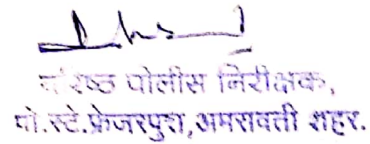 वरिष्ठ पोलीस निरीक्षक,
पो.स्टे.फ्रेजरपुरा,अमरावती शहर.